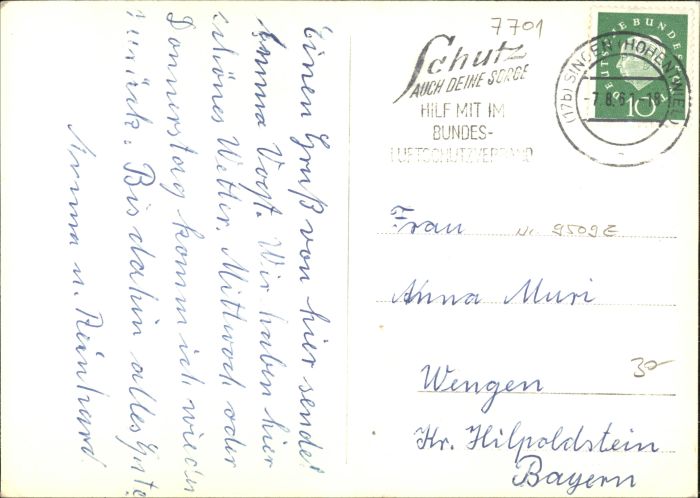 Einen Gruß von hier sendet
Anna Vogt. Wir haben hier
schönes Wetter. Mittwoch oder
Donnerstag komm ich wieder
zurück. Bis dahin alles Gute
Anna u. Reinhard
7701
Schutz
AUCH DEINE SORGE
HILF MIT IM
BUNDES-
LUFTSCHUTZVERBAND
DEUTSCHE BUNDESPOST
10
(17b) SINGEN (HOHENTWIEL)
-7.8.61-18
Frau
Nr. 9509E
Anna Muri
30-
Wengen
Kr. Hilpoldstein
Bayern